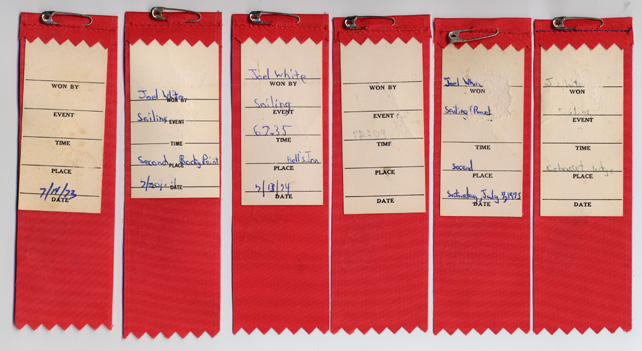 WON BY
EVENT
TIME
PLACE
7/19/73
DATE
Joel White
WON BY
Sailing
EVENT
TIME
Second Body Point
PLACE
DATE
Joel White
WON BY
Sailing
EVENT
67.35
TIME
Hell's Inn
PLACE
7/18/74
DATE
WON BY
EVENT
TIME
PLACE
DATE
Joel White
WON
Sailing
EVENT
TIME
second
PLACE
Saturday, July
DATE
WON
EVENT
TIME
PLACE
DATE